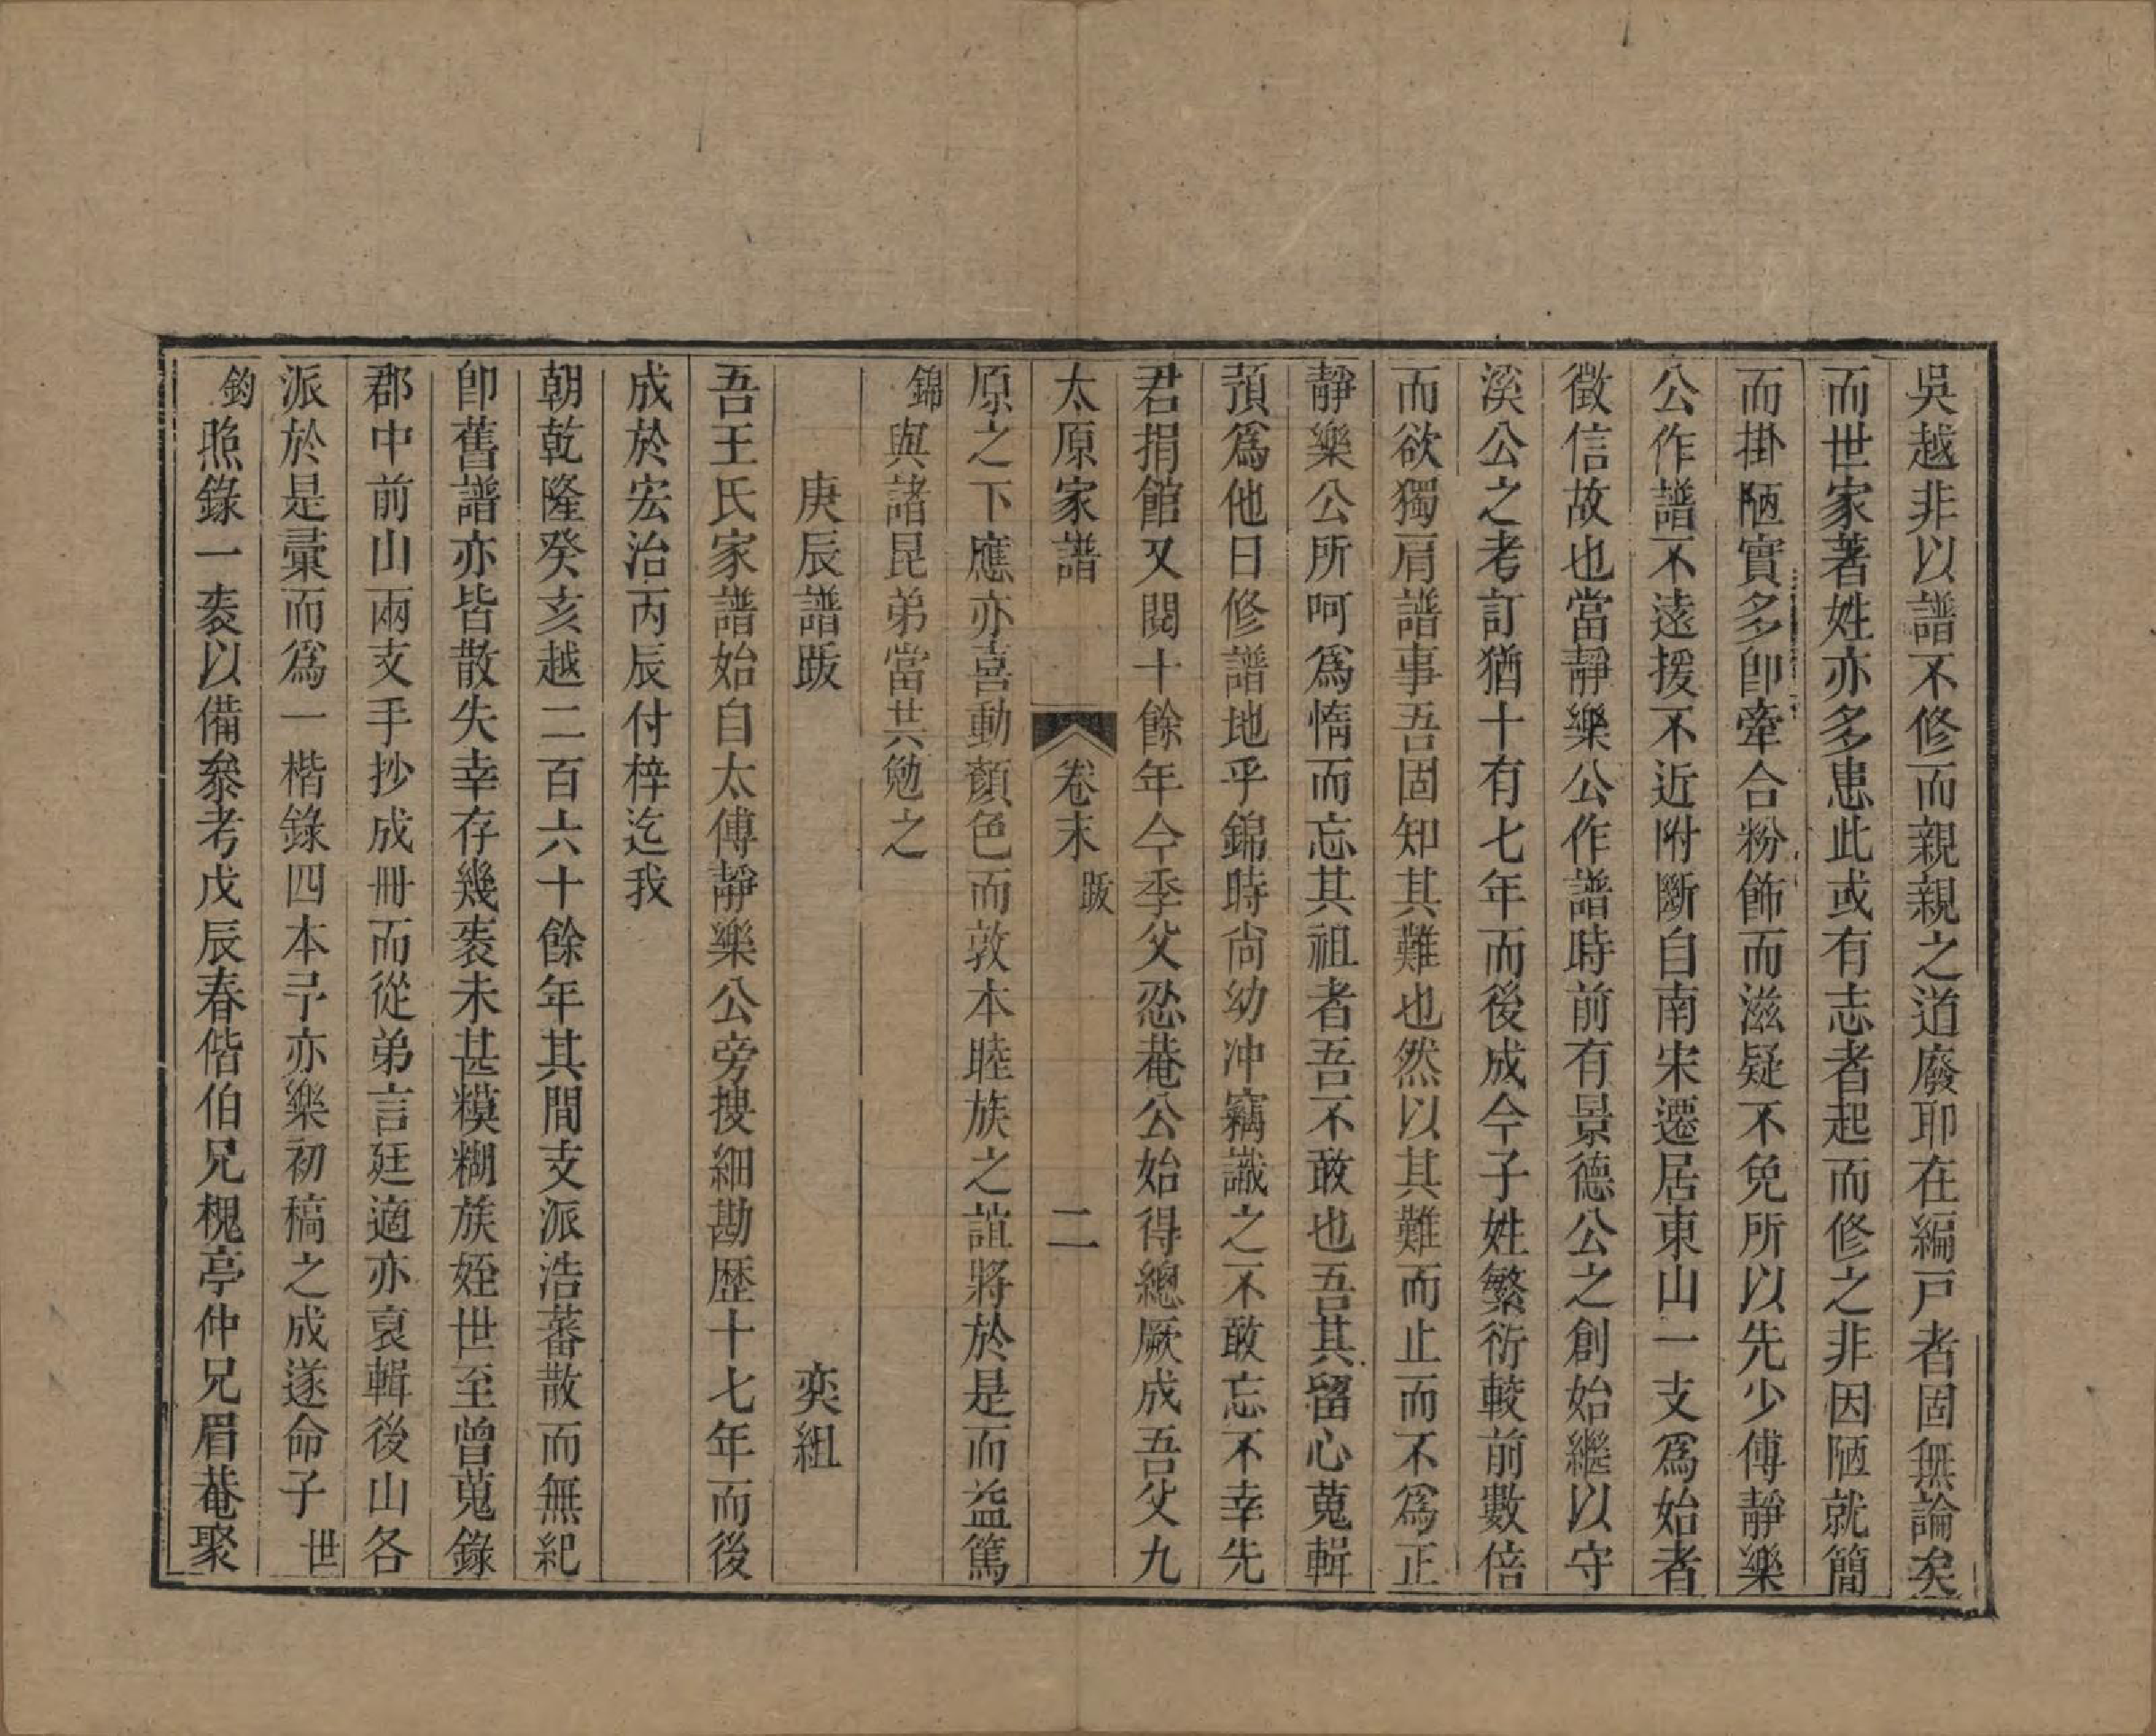 吳越非以譜不修而親親之道廢耶在編戸者固無論矣
而世家著姓亦多患此或有志者起而修之非因陋就簡
而掛陋實多卽牽合粉飾而滋疑不免所以先少傅靜樂
公作譜不遠援不近附斷自南宋遷居東山一支爲始者
徵信故也當靜樂公作譜時前有景德公之創始繼以守
溪公之考訂猶十有七年而後成今子姓繁衍較前數倍
而欲獨肩譜事吾固知其難也然以其難而止而不爲正
靜樂公所呵爲惰而忘其祖者吾不敢也吾其留心蒐輯
預爲他日修譜地乎錦時尙幼冲竊識之不敢忘不幸先
君捐館又閱十餘年今季父忍菴公始得總厥成吾父九
太原家譜 卷末 跋 二
原之下應亦喜動顏色而敦本睦族之誼將於是而益篤
錦與諸昆弟當共勉之
庚辰譜跋 奕組
吾王氏家譜始自太傅靜樂公旁搜細勘歷十七年而後
成於宏治丙辰付梓迄我
朝乾隆癸亥越二百六十餘年其間支派浩蕃散而無紀
卽舊譜亦皆散失幸存幾袠未甚糢糊族姪世至曾蒐錄
郡中前山兩支手抄成冊而從弟言廷適亦裒輯後山各
派於是彙而爲一楷錄四本予亦樂初稿之成遂命子世
鈞照錄一袠以備叅考戊辰春偕伯兄槐亭仲兄眉菴聚